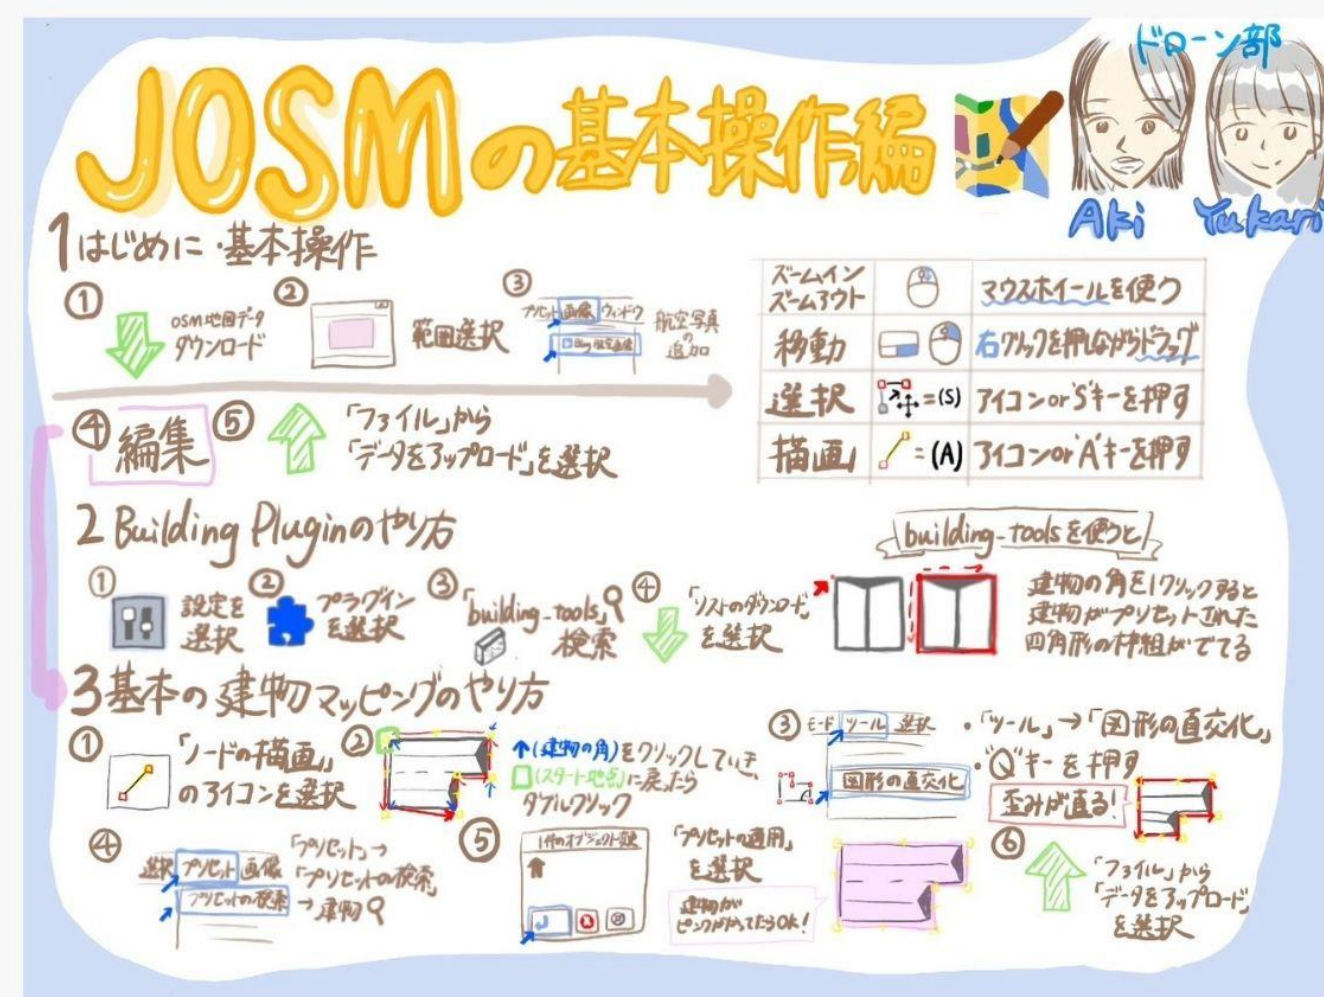 ドローン部
JOSMの基本操作編
Aki
Yukari
1 はじめに・基本操作
①
OSM地図データ
ダウンロード
②
範囲選択
③
プリセット 画像 ウィンドウ
Bing 航空画像
航空写真
の
追加
④
編集
⑤
「ファイル」から
「データをアップロード」を選択
ズームイン
ズームアウト
マウスホイールを使う
移動
右クリックを押しながらドラッグ
選択
=(S)
アイコンor'S'キーを押す
描画
=(A)
アイコンor'A'キーを押す
2 Building Pluginのやり方
①
設定を
選択
②
プラグイン
を選択
③
「building_tools」
検索
④
「リストのダウンロード」
を選択
building_toolsを使うと
建物の角を1クリックすると
建物がプリセットされた
四角形の枠組がでてる
3 基本の建物マッピングのやり方
①
「ノードの描画」
のアイコンを選択
②
↑(建物の角)をクリックしていき、
□(スタート地点)に戻ったら
ダブルクリック
③
モード ツール 選択
図形の直交化
・「ツール」→「図形の直交化」
・"Q"キーを押す
歪みが直る!
④
選択 プリセット 画像
プリセットの検索
「プリセット」→
「プリセットの検索」
→建物
⑤
1件のオブジェクト変更
「プリセットの適用」
を選択
建物が
ピンクがかってたらOK!
⑥
「ファイル」から
「データをアップロード」
を選択